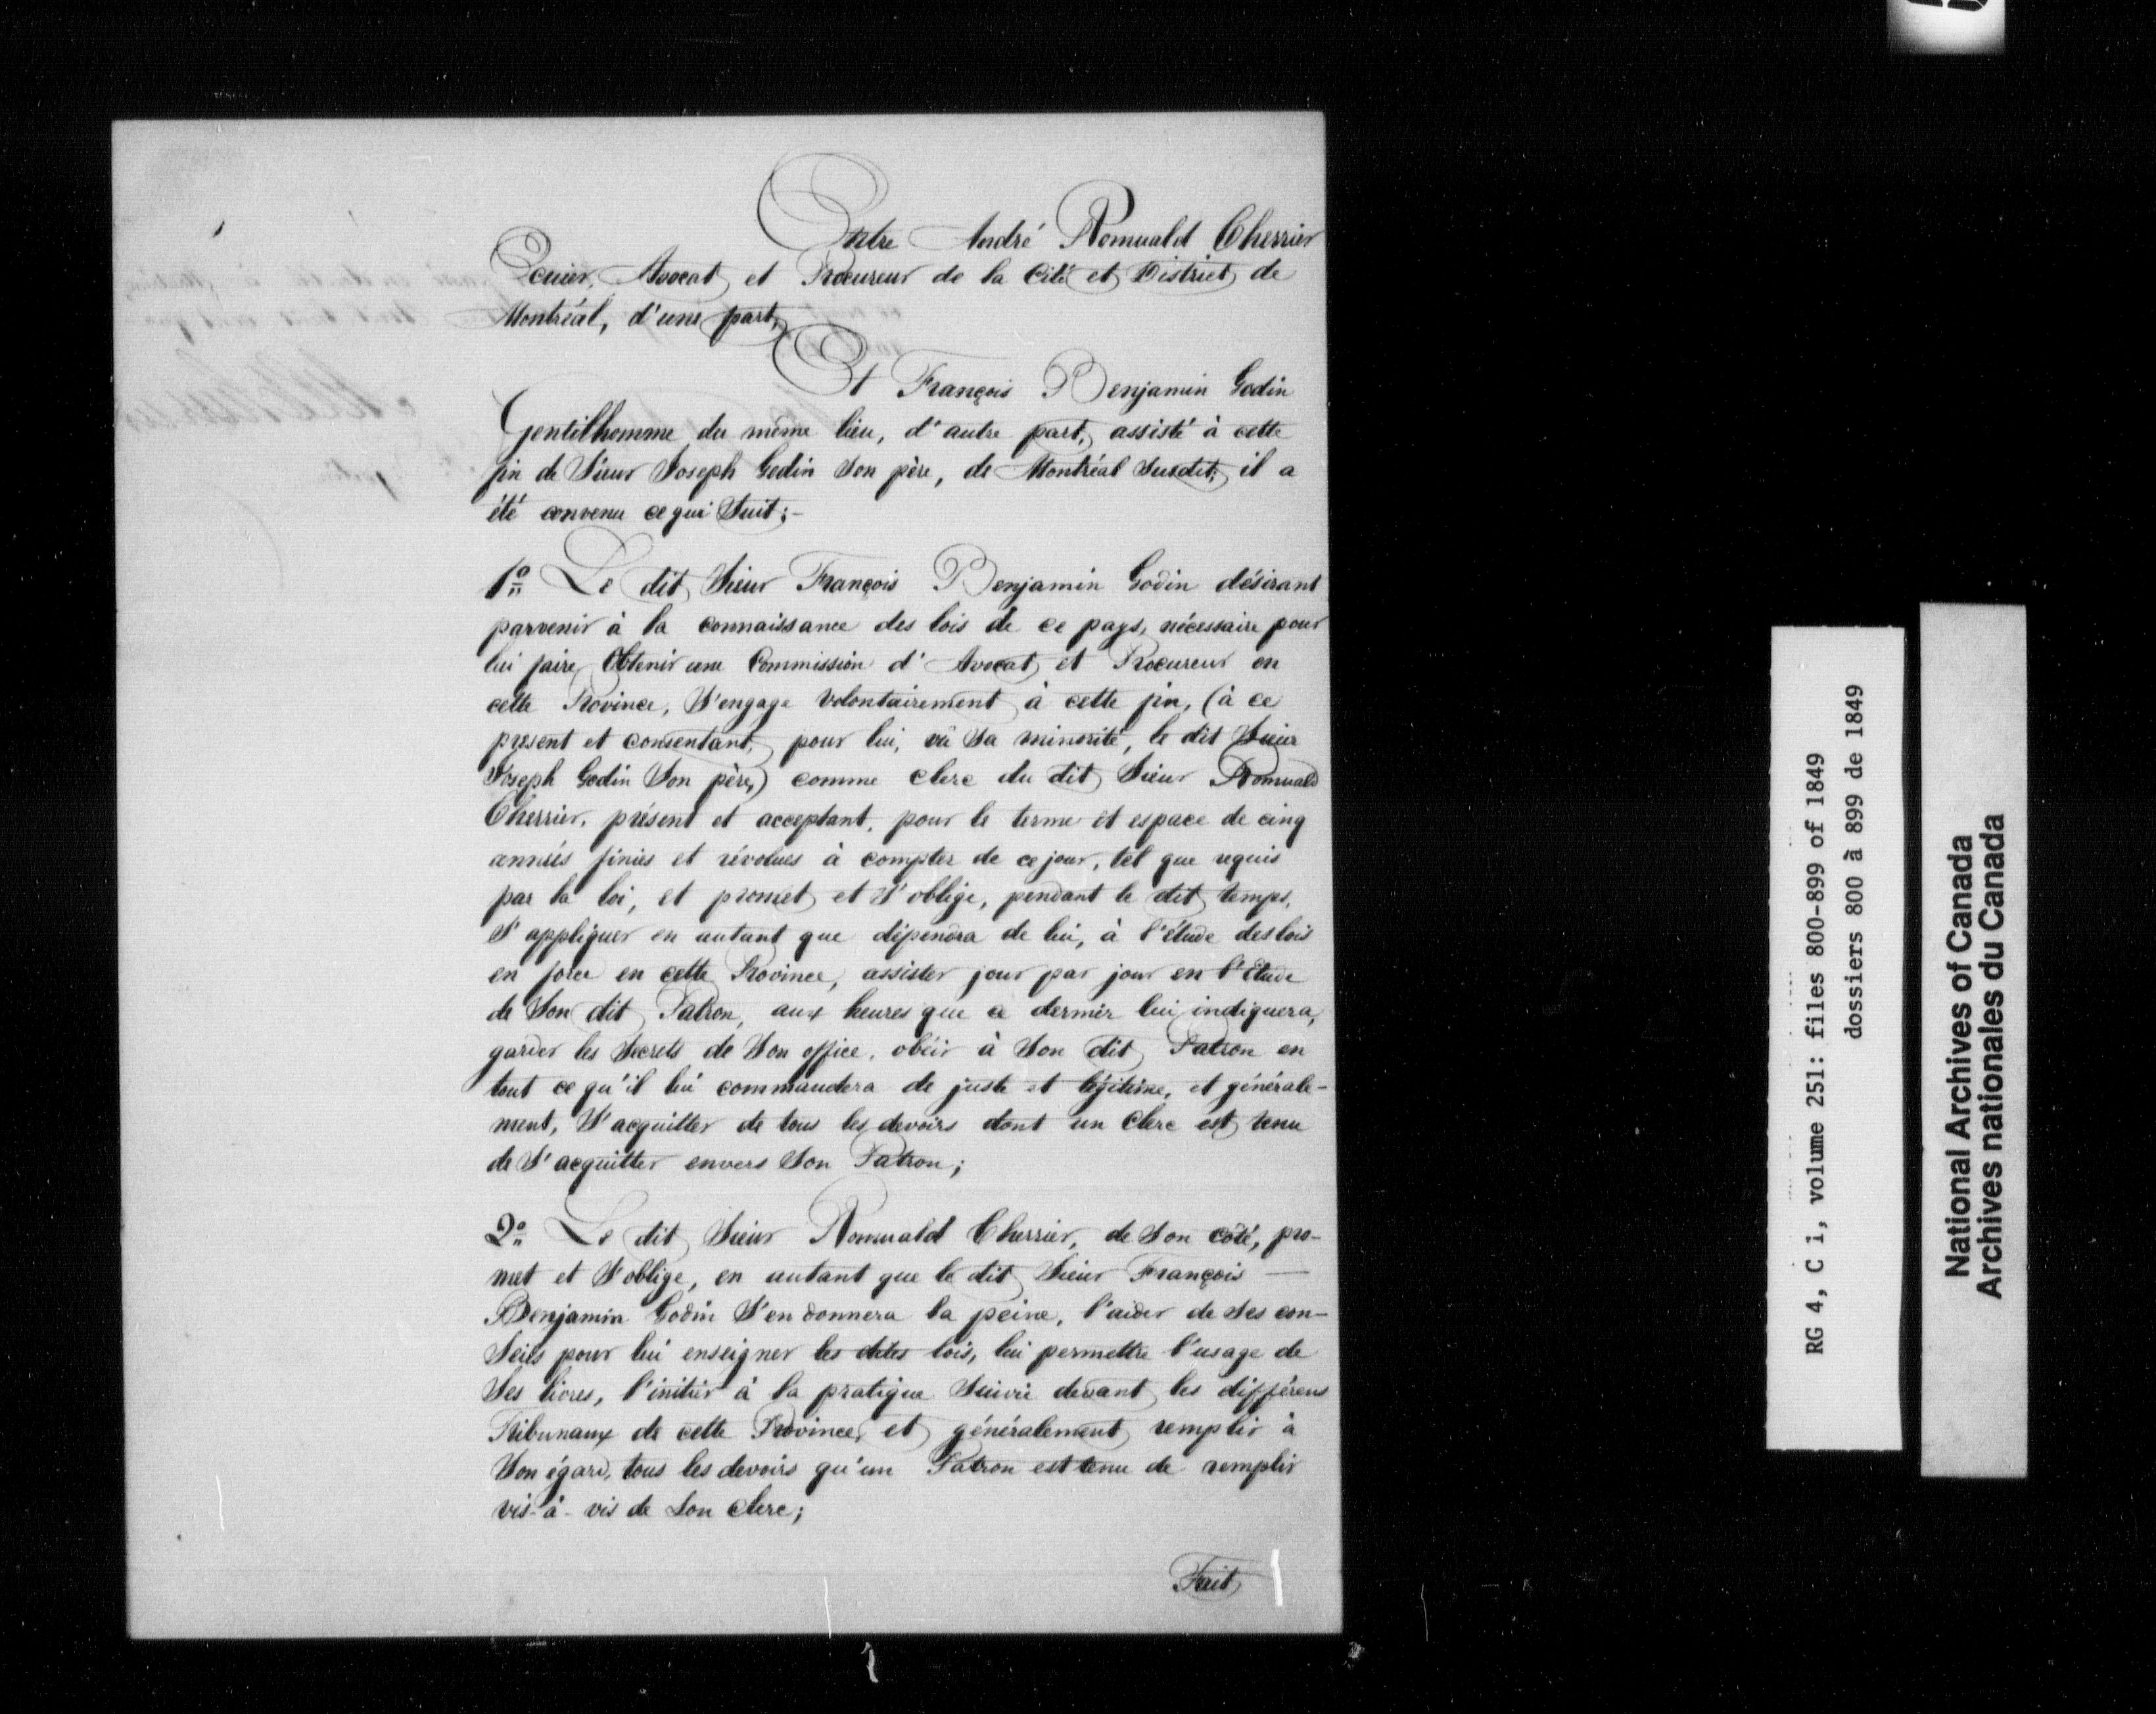 Entre André Romuald Cherrier
Ecuier, Avocat et Procureur de la Cité et District de
Montréal, d'une part,
Et François Benjamin Godin
Gentilhomme du même lieu, d'autre part, assisté à cette
fin de Sieur Joseph Godin Son père, de Montréal Susdit; il a
été convenu ce qui Suit;-
1º Le dit Sieur François Benjamin Godin désirant
parvenir à la connaissance des lois de ce pays, nécessaire pour
lui faire Obtenir une Commission d'Avocat et Procureur en
cette Province, S'engage volontairement à cette fin, (à ce
présent et consentant, pour lui, vû Sa minorité, le dit Sieur
Joseph Godin Son père,) comme clerc du dit Sieur Romuald
Cherrier, présent et acceptant, pour le terme et espace de cinq
années finies et révolues à compter de ce jour, tel que requis
par la loi, et promet et S'oblige, pendant le dit temps,
S'appliquer en autant que dépendra de lui, à l'étude des lois
en force en cette Province, assister jour par jour en l'Etude
de Son dit Patron, aux heures que ce dernier lui indiquera,
garder les Secrets de Son office, obéir à Son dit Patron en
tout ce qu'il lui commandera de juste et légitime, et générale-
ment, S'acquitter de tous les devoirs dont un Clerc est tenu
de S'acquitter envers Son Patron;
2º Le dit Sieur Romuald Cherrier, de Son côté, pro-
met et S'oblige, en autant que le dit Sieur François —
Benjamin Godin S'en donnera la peine, l'aider de Ses con-
Seils pour lui enseigner les dites lois, lui permettre l'usage de
Ses livres, l'initier à la pratique Suivie devant les différens
Tribunaux de cette Province, et généralement remplir à
Son égard, tous les devoirs qu'un Patron est tenu de remplir
vis-à-vis de Son Clerc;
Fait
RG 4, C i, volume 251: files 800-899 of 1849
dossiers 800 à 899 de 1849
National Archives of Canada
Archives nationales du Canada